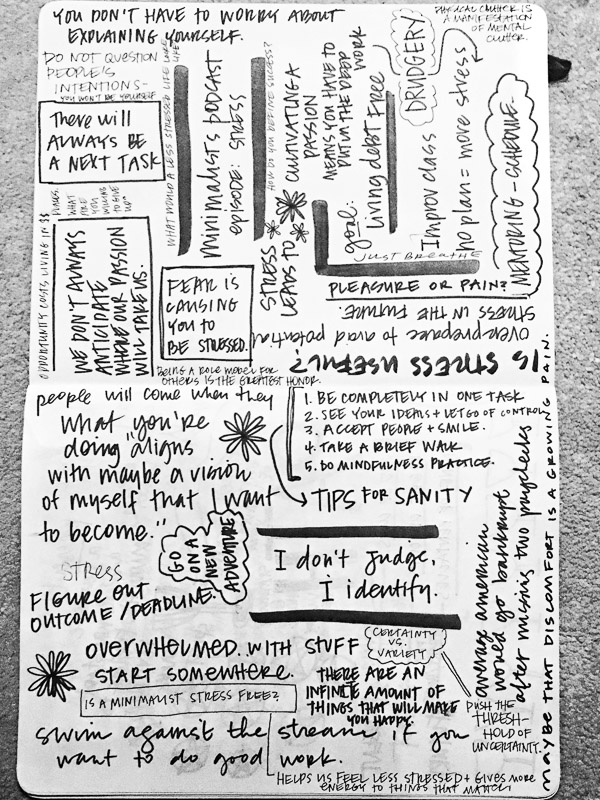 YOU DON'T HAVE TO WORRY ABOUT
EXPLAINING YOURSELF.
PHYSICAL CLUTTER IS
A MANIFESTATION
OF MENTAL
CLUTTER.
DO NOT QUESTION
PEOPLE'S
INTENTIONS-
YOU WON'T BE YOURSELF
There will
ALWAYS BE
A NEXT TASK
WHAT WOULD A LESS STRESSED LIFE LOOK
LIKE?
minimalist's podcast
episode: STRESS
HOW DO YOU DEFINE SUCCESS?
CULTIVATING A
PASSION
MEANS YOU HAVE TO
PUT IN THE DEEP
WORK
STRESS
LEADS TO
goal:
living debt free
DRUDGERY
Improv class
no plan = more stress
MENTORING - SCHEDULE.
JUST BREATHE
PLEASURE OR PAIN?
OPPORTUNITY COSTS LIVING IN $$
PLACES.
WHAT
ARE YOU
WILLING
TO GIVE
UP
WE DON'T ALWAYS
ANTICIPATE
WHERE OUR PASSION
WILL TAKE US.
FEAR IS
CAUSING
YOU TO
BE STRESSED.
IS STRESS USEFUL?
over-prepare to avoid potential
STRESS IN THE FUTURE.
BEING A ROLE MODEL FOR
OTHERS IS THE GREATEST HONOR.
people will come when they
What you're
doing "aligns
with maybe a vision
of myself that I want
to become."
1. BE COMPLETELY IN ONE TASK
2. SEE YOUR IDEALS + LET GO OF CONTROL
3. ACCEPT PEOPLE + SMILE.
4. TAKE A BRIEF WALK
5. DO MINDFULNESS PRACTICE.
TIPS FOR SANITY
GO
ON A
NEW
ADVENTURE
I don't judge,
I identify.
STRESS
FIGURE OUT
OUTCOME/DEADLINE.
average american
would go bankrupt
after missing two paychecks
maybe THAT DISCOMFORT IS A GROWING PAIN.
OVERWHELMED WITH STUFF
START SOMEWHERE.
CERTAINTY
VS.
VARIETY
PUSH THE
THRESH-
HOLD OF
UNCERTAINTY.
IS A MINIMALIST STRESS FREE?
THERE ARE AN
INFINITE AMOUNT OF
THINGS THAT WILL MAKE
YOU HAPPY.
swim against the stream if you
want to do good work.
HELPS US FEEL LESS STRESSED + GIVES MORE
ENERGY TO THINGS THAT MATTER